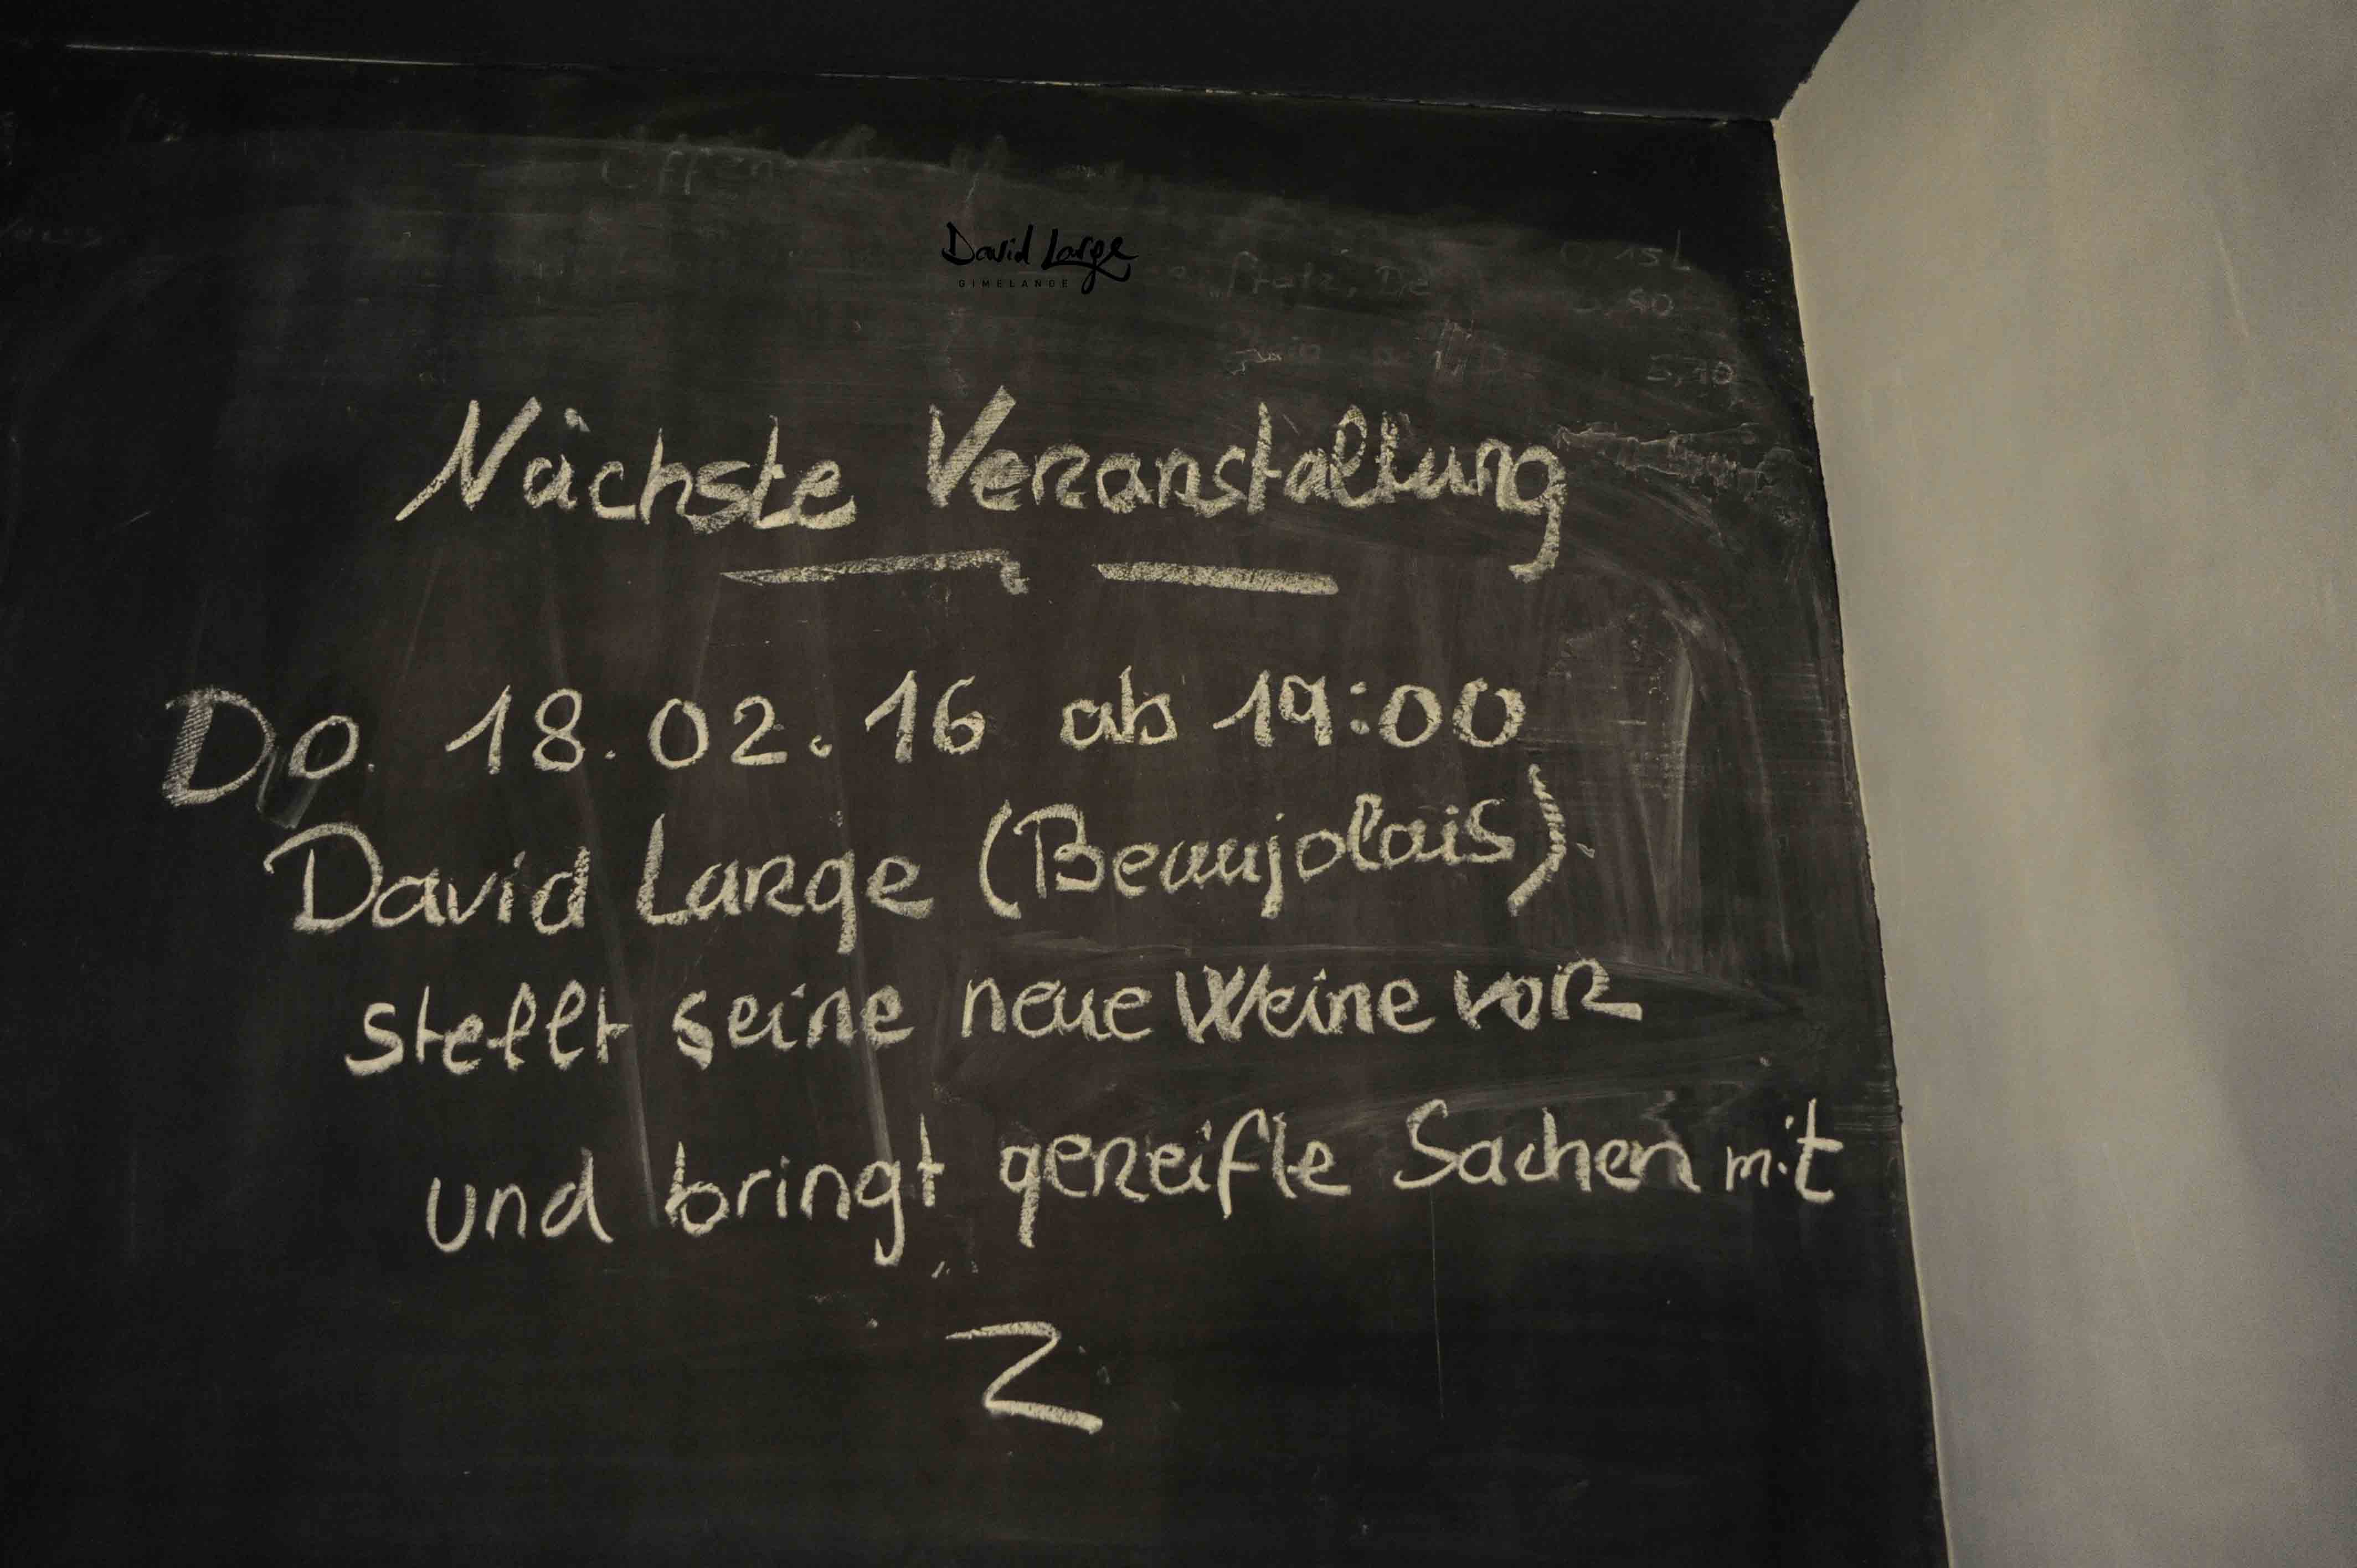 David Large
GIMELANDE
Nächste Veranstaltung
Do. 18.02.16 ab 19:00
David Large (Beaujolais).
stellt seine neue Weine vor
und bringt gereifte Sachen mit